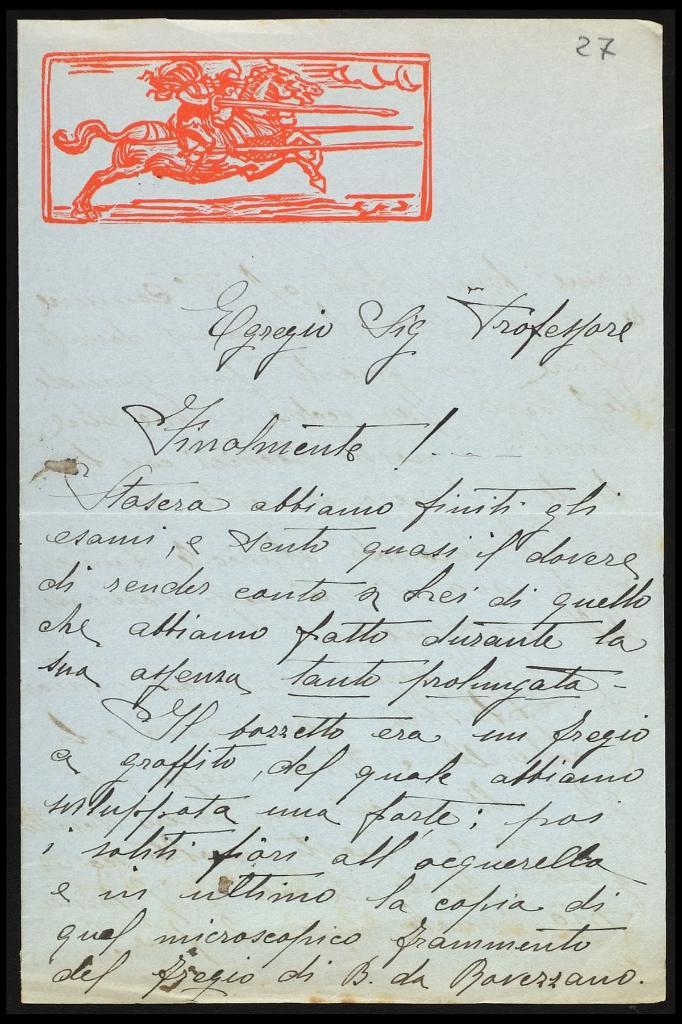 27
Egregio Sig Professore
Finalmente!
Stasera abbiamo finiti gli
esami, e sento quasi il dovere
di render conto a Lei di quello
che abbiamo fatto durante la
sua assenza tanto prolungata -
Il bozzetto era un fregio
a graffito, del quale abbiamo
sviluppata una parte; poi
i soliti fiori all'acquerello
e in ultimo la copia di
quel microscopico frammento
del fregio di B. da Rovezzano.